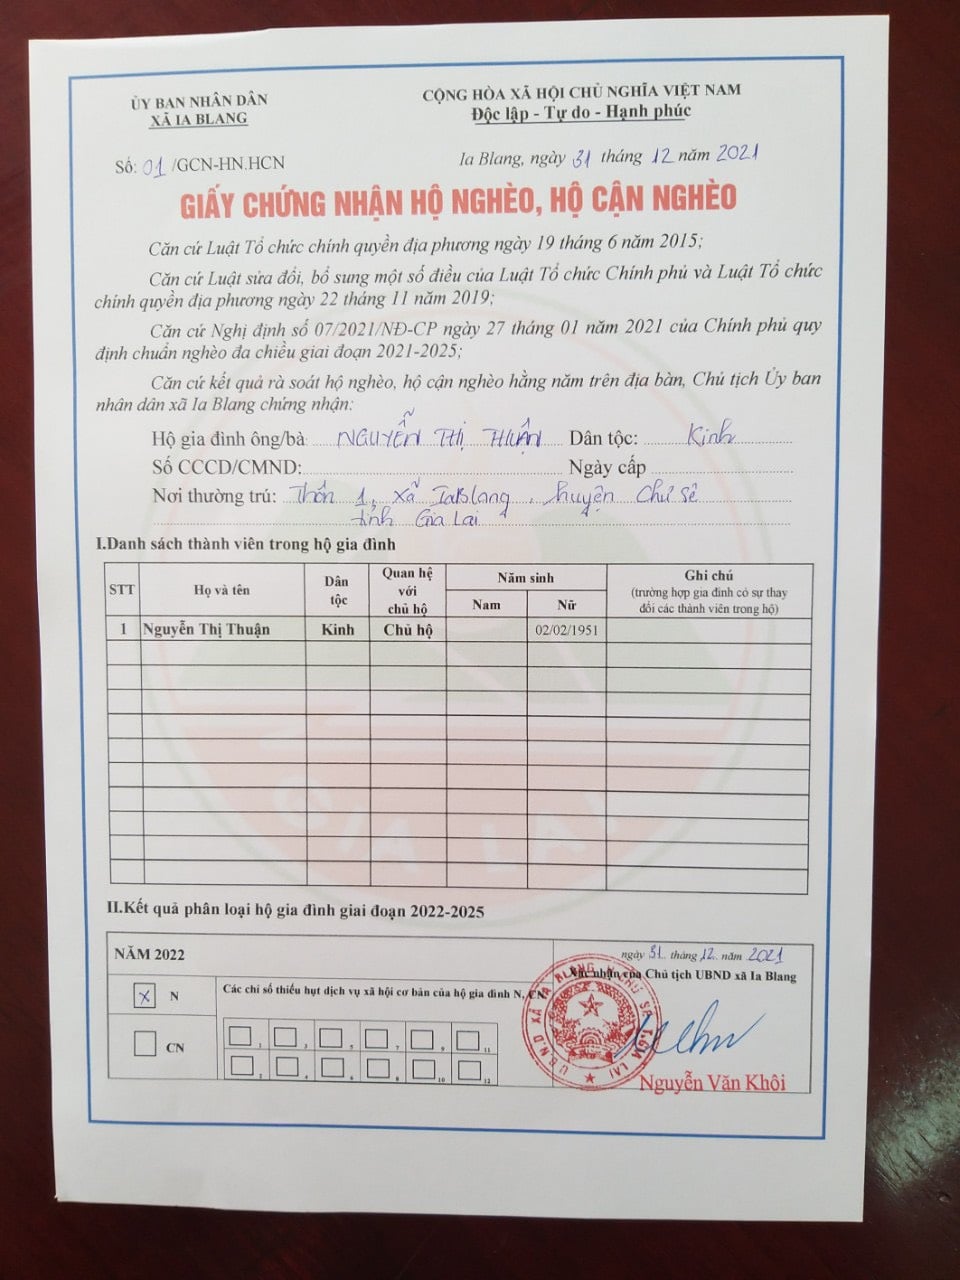 ỦY BAN NHÂN DÂN
XÃ IA BLANG
CỘNG HÒA XÃ HỘI CHỦ NGHĨA VIỆT NAM
Độc lập - Tự do - Hạnh phúc
Số: 01/GCN-HN.HCN
Ia Blang, ngày 31 tháng 12 năm 2021
GIẤY CHỨNG NHẬN HỘ NGHÈO, HỘ CẬN NGHÈO
Căn cứ Luật Tổ chức chính quyền địa phương ngày 19 tháng 6 năm 2015;
Căn cứ Luật sửa đổi, bổ sung một số điều của Luật Tổ chức Chính phủ và Luật Tổ chức
chính quyền địa phương ngày 22 tháng 11 năm 2019;
Căn cứ Nghị định số 07/2021/NĐ-CP ngày 27 tháng 01 năm 2021 của Chính phủ quy
định chuẩn nghèo đa chiều giai đoạn 2021-2025;
Căn cứ kết quả rà soát hộ nghèo, hộ cận nghèo hằng năm trên địa bàn, Chủ tịch Ủy ban
nhân dân xã Ia Blang chứng nhận:
Hộ gia đình ông/bà NGUYỄN THỊ THUẬN Dân tộc: Kinh
Số CCCD/CMND: Ngày cấp
Nơi thường trú: Thôn 1, xã IaBlang, huyện Chư Sê
tỉnh Gia Lai
I.Danh sách thành viên trong hộ gia đình
STT Họ và tên Dân tộc Quan hệ với chủ hộ Năm sinh Ghi chú
(trường hợp gia đình có sự thay
đổi các thành viên trong hộ)
Nam Nữ
1 Nguyễn Thị Thuận Kinh Chủ hộ 02/02/1951
GIA LAI
II.Kết quả phân loại hộ gia đình giai đoạn 2022-2025
NĂM 2022
ngày 31 tháng 12 năm 2021
Xác nhận của Chủ tịch UBND xã Ia Blang
X N
Các chỉ số thiếu hụt dịch vụ xã hội cơ bản của hộ gia đình N, CN
1 3 5 7 9 11
CN
2 4 6 8 10 12
U.B.N.D XÃ IA BLANG H. CHƯ SÊ T. GIA LAI
Nguyễn Văn Khôi